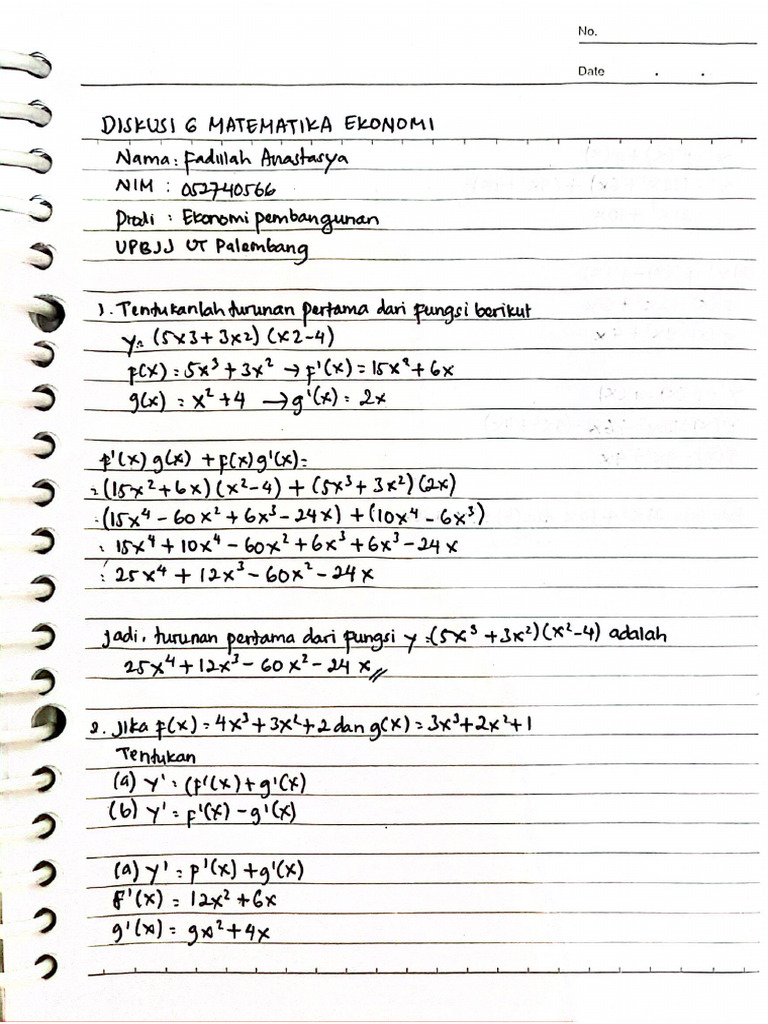 No.
Date . .
DISKUSI 6 MATEMATIKA EKONOMI
Nama : Fadillah Anastasya
NIM : 052740566
Prodi : Ekonomi pembangunan
UPBJJ UT Palembang
1. Tentukanlah turunan pertama dari fungsi berikut
y = (5x3 + 3x2) (x2 - 4)
f(x) = 5x³ + 3x² → f'(x) = 15x² + 6x
g(x) = x² + 4 → g'(x) = 2x
f'(x) g(x) + f(x) g'(x) =
= (15x² + 6x) (x² - 4) + (5x³ + 3x²) (2x)
= (15x⁴ - 60x² + 6x³ - 24x) + (10x⁴ - 6x³)
= 15x⁴ + 10x⁴ - 60x² + 6x³ + 6x³ - 24x
= 25x⁴ + 12x³ - 60x² - 24x
Jadi, turunan pertama dari fungsi y = (5x³ + 3x²) (x² - 4) adalah
25x⁴ + 12x³ - 60x² - 24x //
2. Jika f(x) = 4x³ + 3x² + 2 dan g(x) = 3x³ + 2x² + 1
Tentukan
(a) y' = (f'(x) + g'(x)
(b) y' = f'(x) - g'(x)
(a) y' = f'(x) + g'(x)
f'(x) = 12x² + 6x
g'(x) = 9x² + 4x